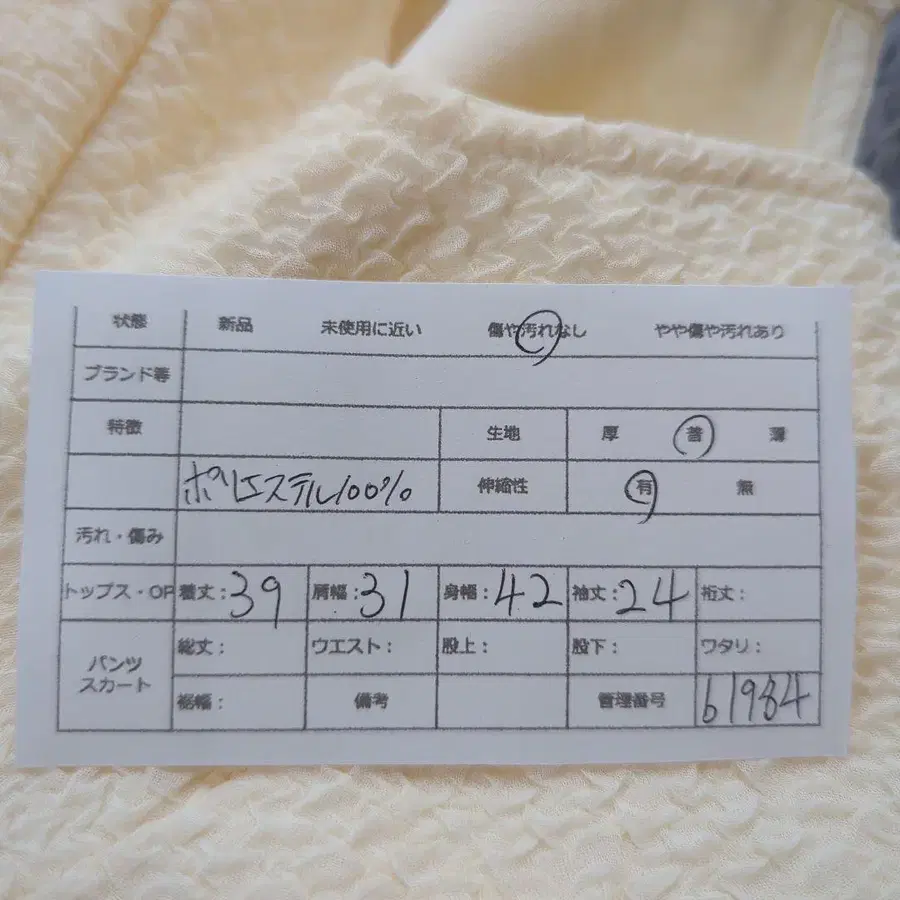 状態 新品 未使用に近い 傷や汚れなし やや傷や汚れあり
ブランド等
特徴 生地 厚 普 薄
ポリエステル100% 伸縮性 有 無
汚れ・傷み
トップス・OP 着丈:39 肩幅:31 身幅:42 袖丈:24 裄丈:
パンツ
スカート
総丈: ウエスト: 股上: 股下: ワタリ:
裾幅: 備考 管理番号 61984